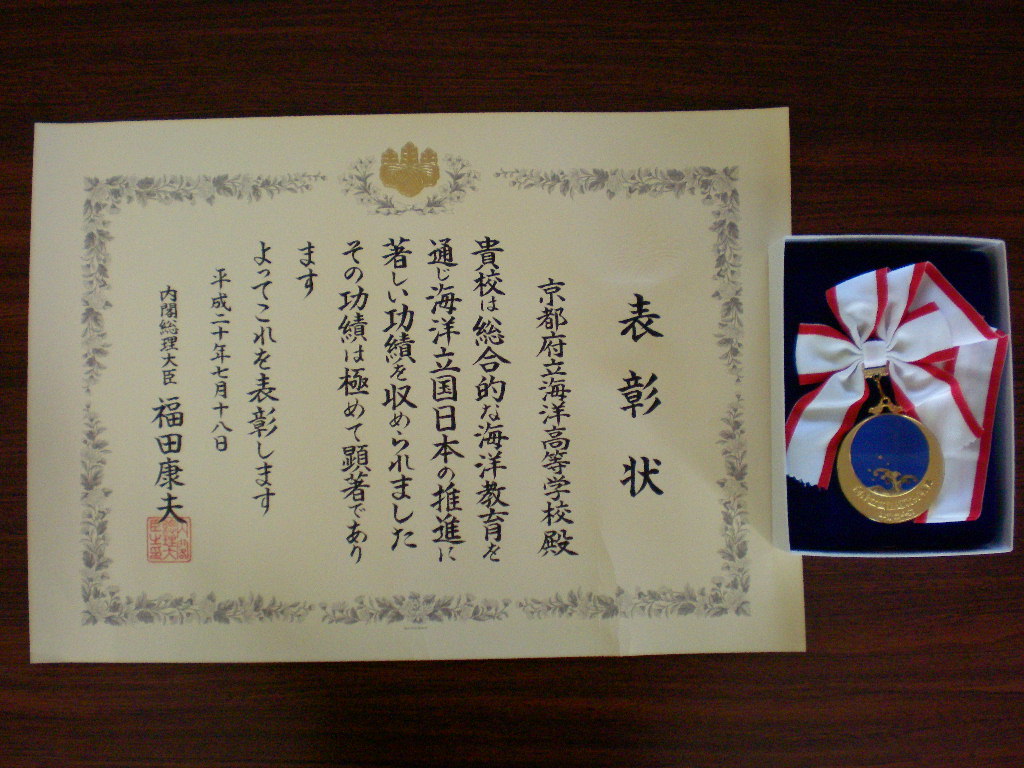 表彰状
京都府立海洋高等学校殿
貴校は総合的な海洋教育を
通じ海洋立国日本の推進に
著しい功績を収められました
その功績は極めて顕著であり
ます
よってこれを表彰します
平成二十年七月十八日
内閣総理大臣 福田康夫